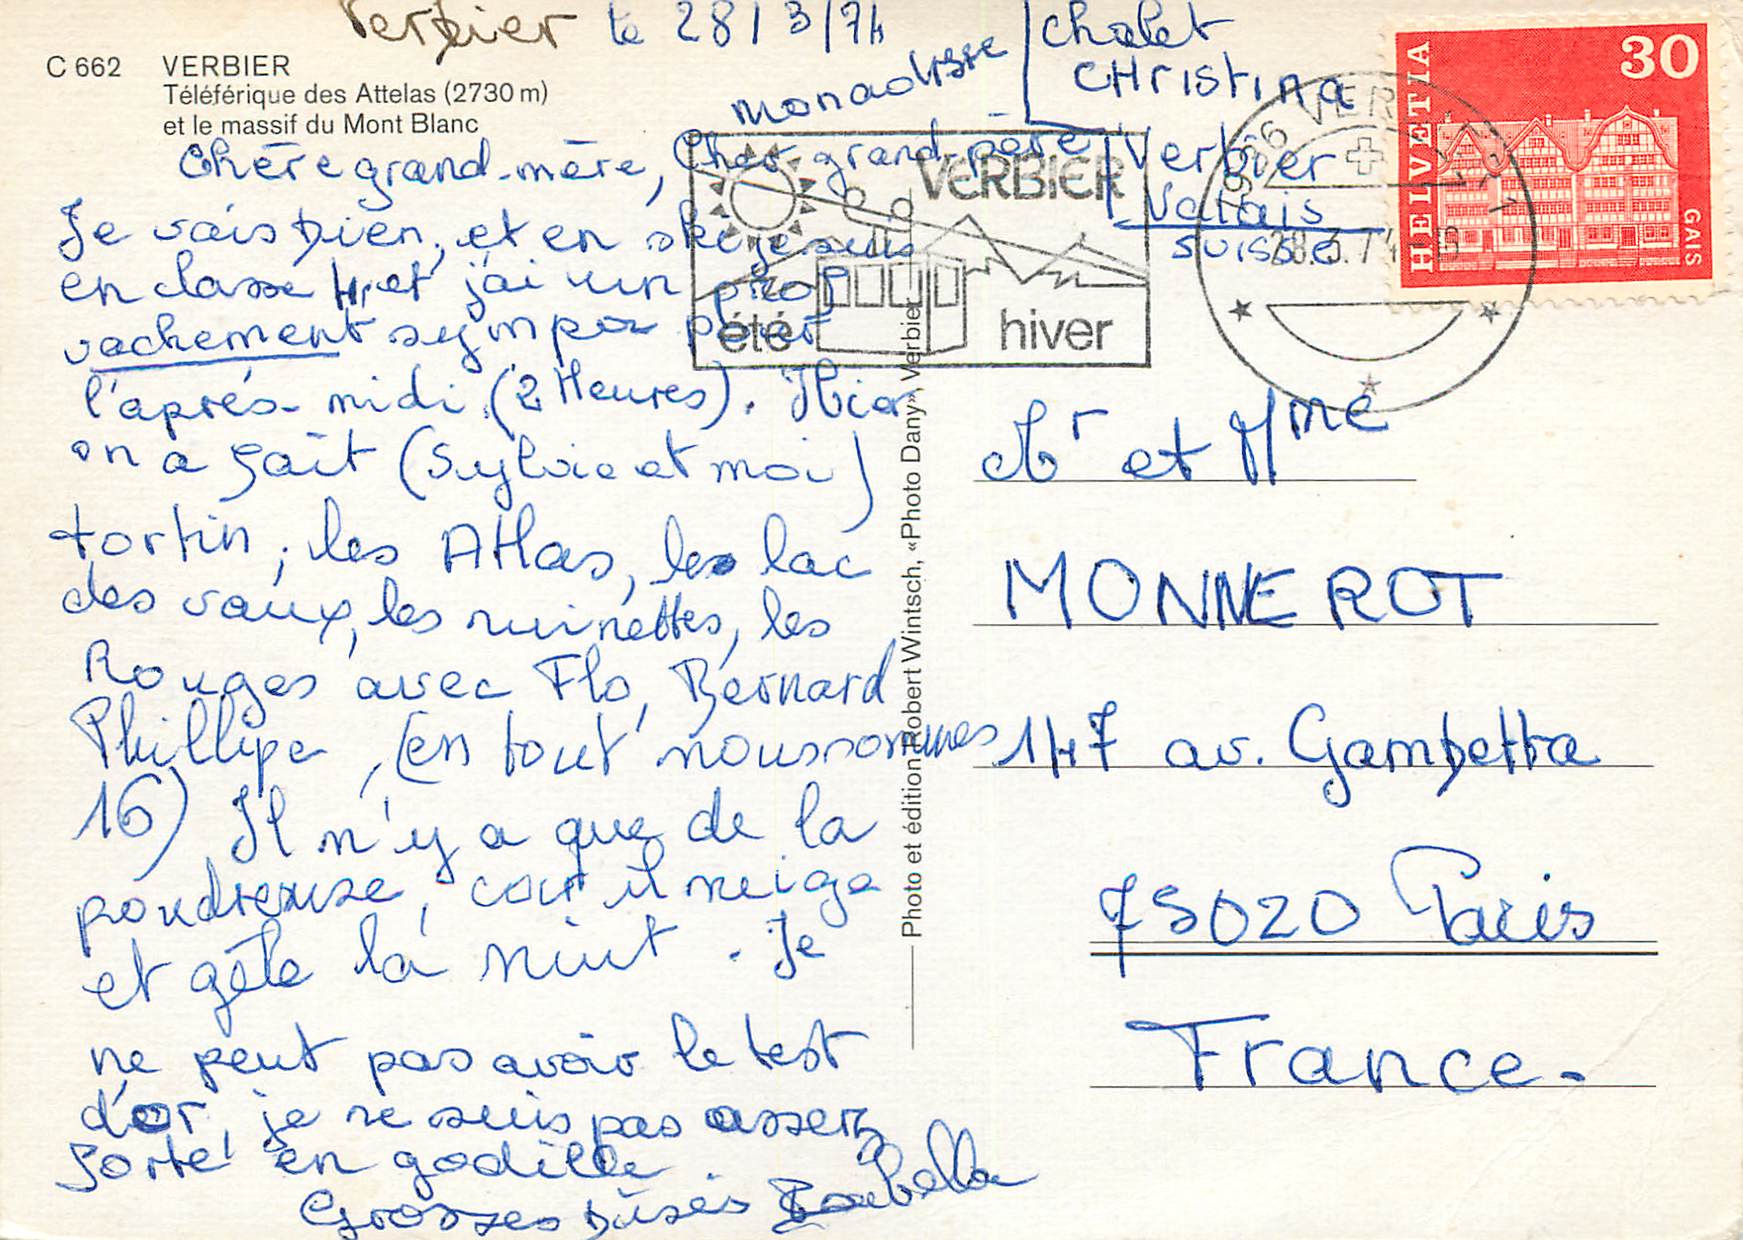 Verbier le 28/3/74
C 662 VERBIER
Téléférique des Attelas (2730 m)
et le massif du Mont Blanc
mon adresse
chalet
CHristina
Verbier
Valais
suisse
Chère grand-mère, Cher grand-père
Je vais bien, et en ski je suis
en classe 4, et j'ai un prof
vachement sympa pour
l'après-midi (2 Heures). Hier
on a fait (Sylvie et moi)
tortin, les Atlas, les lac
des vaux, les ruinettes, les
Rouges avec Flo, Bernard
Phillipe, (en tout nous sommes
16) Il n'y a que de la
poudreuse, car il neige
et gêle la nuit. Je
ne peut pas avoir le test
d'or, je ne suis pas assez
forte en godille.
Grosses bises Isabella
VERBIER
été hiver
1936 VERBIER
28.3.74
HELVETIA
30
GAIS
Photo et édition Robert Wintsch, «Photo Dany», Verbier
Mr et Mme
MONNEROT
147 av. Gambetta
75020 Paris
France.